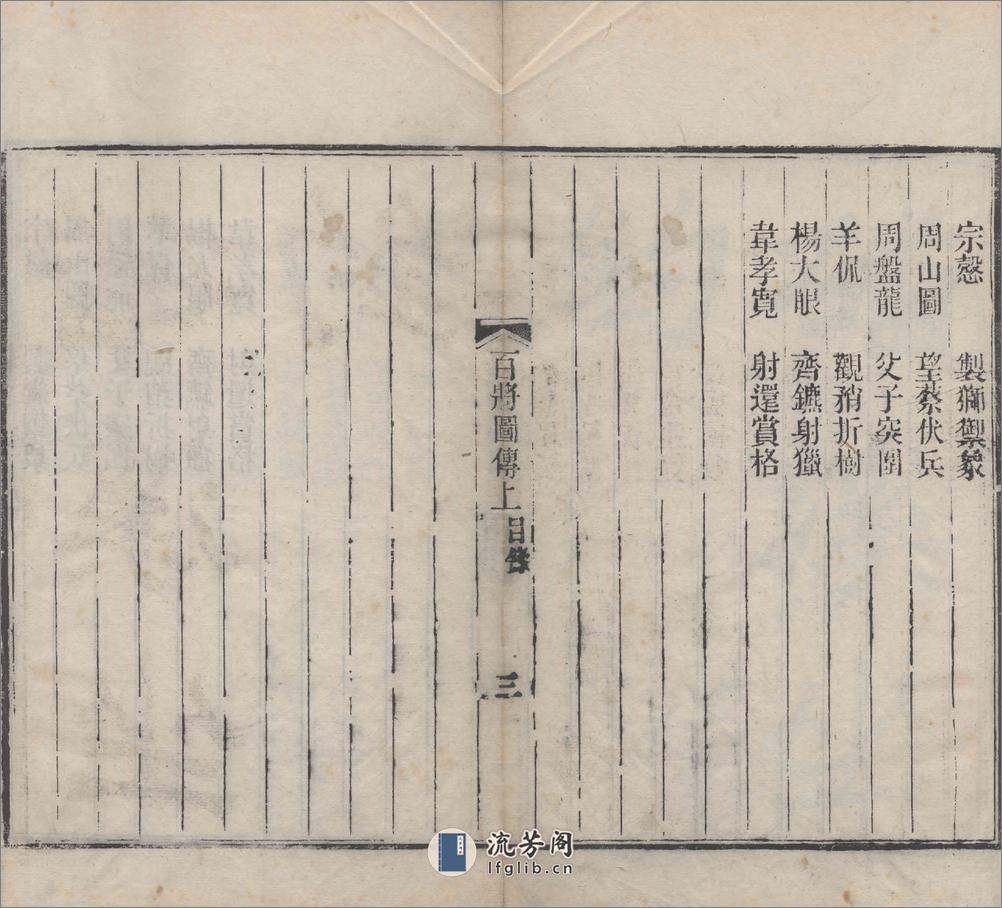 宗慤　製獅禦象
周山圖　望蔡伏兵
周盤龍　父子突圍
羊侃　觀矟折樹
楊大眼　齊鑣射獵
韋孝寬　射還賞格
百將圖傳上 目錄 三
流芳阁
lfglib.cn